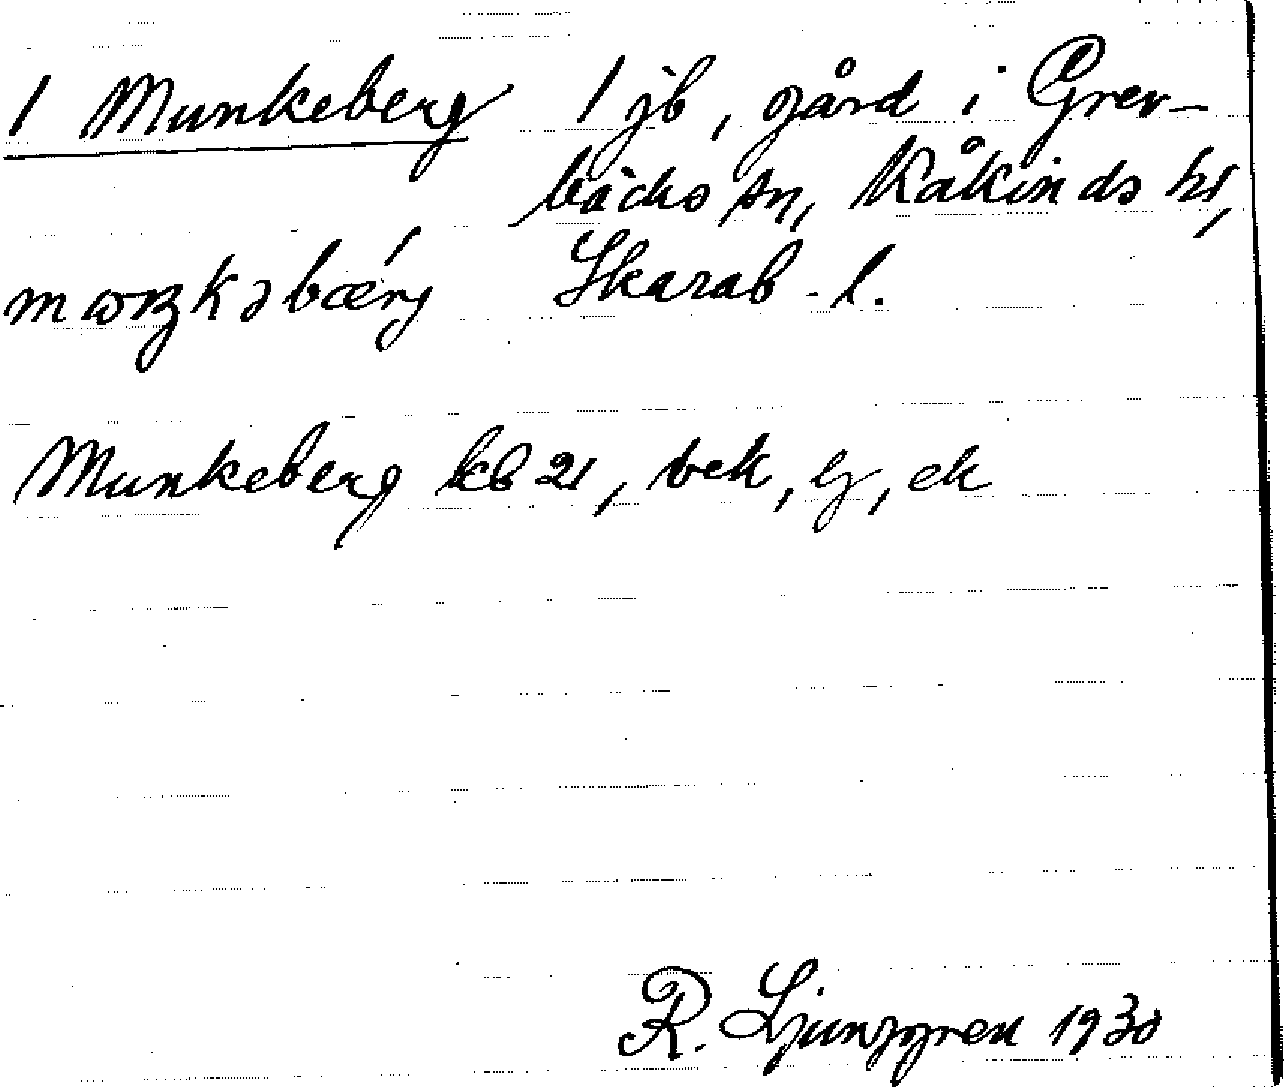 1 Munkeberg 1 jb, gård i Grev-
bäcks sn, Kåkinds hd,
Skarab. l.
Munkeberg kb 21, bek, eg, ek
R. Ljunggren 1930